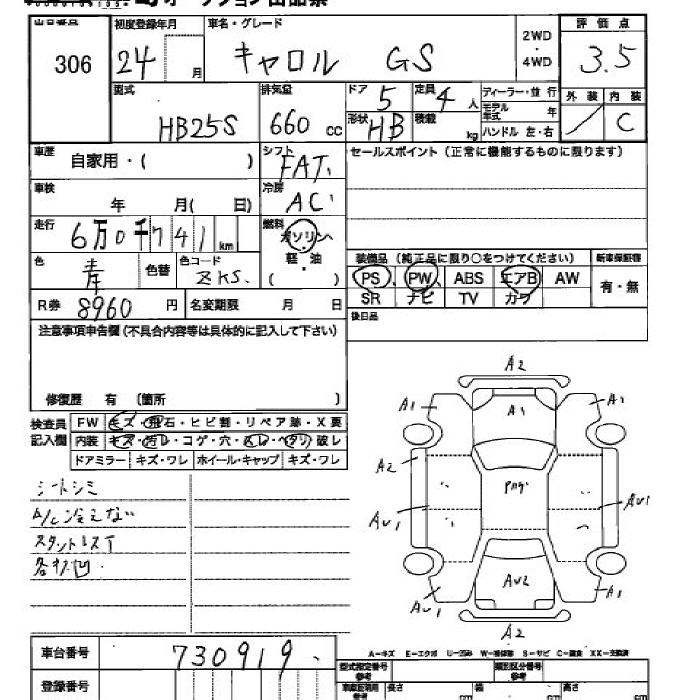 出品番号 初度登録年月 車名・グレード 評価点
306 24 月 キャロル GS 2WD・4WD 3.5
型式 排気量 ドア 5 定員 4 人 ディーラー・並行 外装 内装
HB25S 660 cc 形状 HB 積載 kg モデル年式 年 ハンドル 左・右 / C
車歴 自家用・( ) シフト FAT セールスポイント (正常に機能するものに限ります)
車検 年 月( 日) 冷房 AC
走行 6万0千741 km 燃料 ガソリン・軽・油 ( )
色 青 色替 色コード ZKS. 装備品 (純正品に限り○をつけてください) 新車保証書
PS PW ABS エアB AW 有・無
R券 8960 円 名変期限 月 日 SR ナビ TV カワ
注意事項申告欄(不具合内容等は具体的に記入して下さい) 後日品
修復歴 有 (箇所 )
検査員記入欄 FW キズ・飛石・ヒビ割・リペア跡・X要
内装 キズ・汚レ・コゲ・穴・スレ・ヘタリ・破レ
ドアミラー キズ・ワレ ホイール・キャップ キズ・ワレ
シートシミ
A/C冷えない
スタットレスT
各キズ凹
A2
A1 A1 A1
A2
AU1 AU1
AU2
AU1 A1
A2
A-キズ E-エクボ U-凹み W-補修跡 S-サビ C-腐食 XX-交換済
車台番号 730919
登録番号 型式指定番号 参考 類別区分番号 参考
車庫証明用 参考 長さ cm 幅 cm 高さ cm